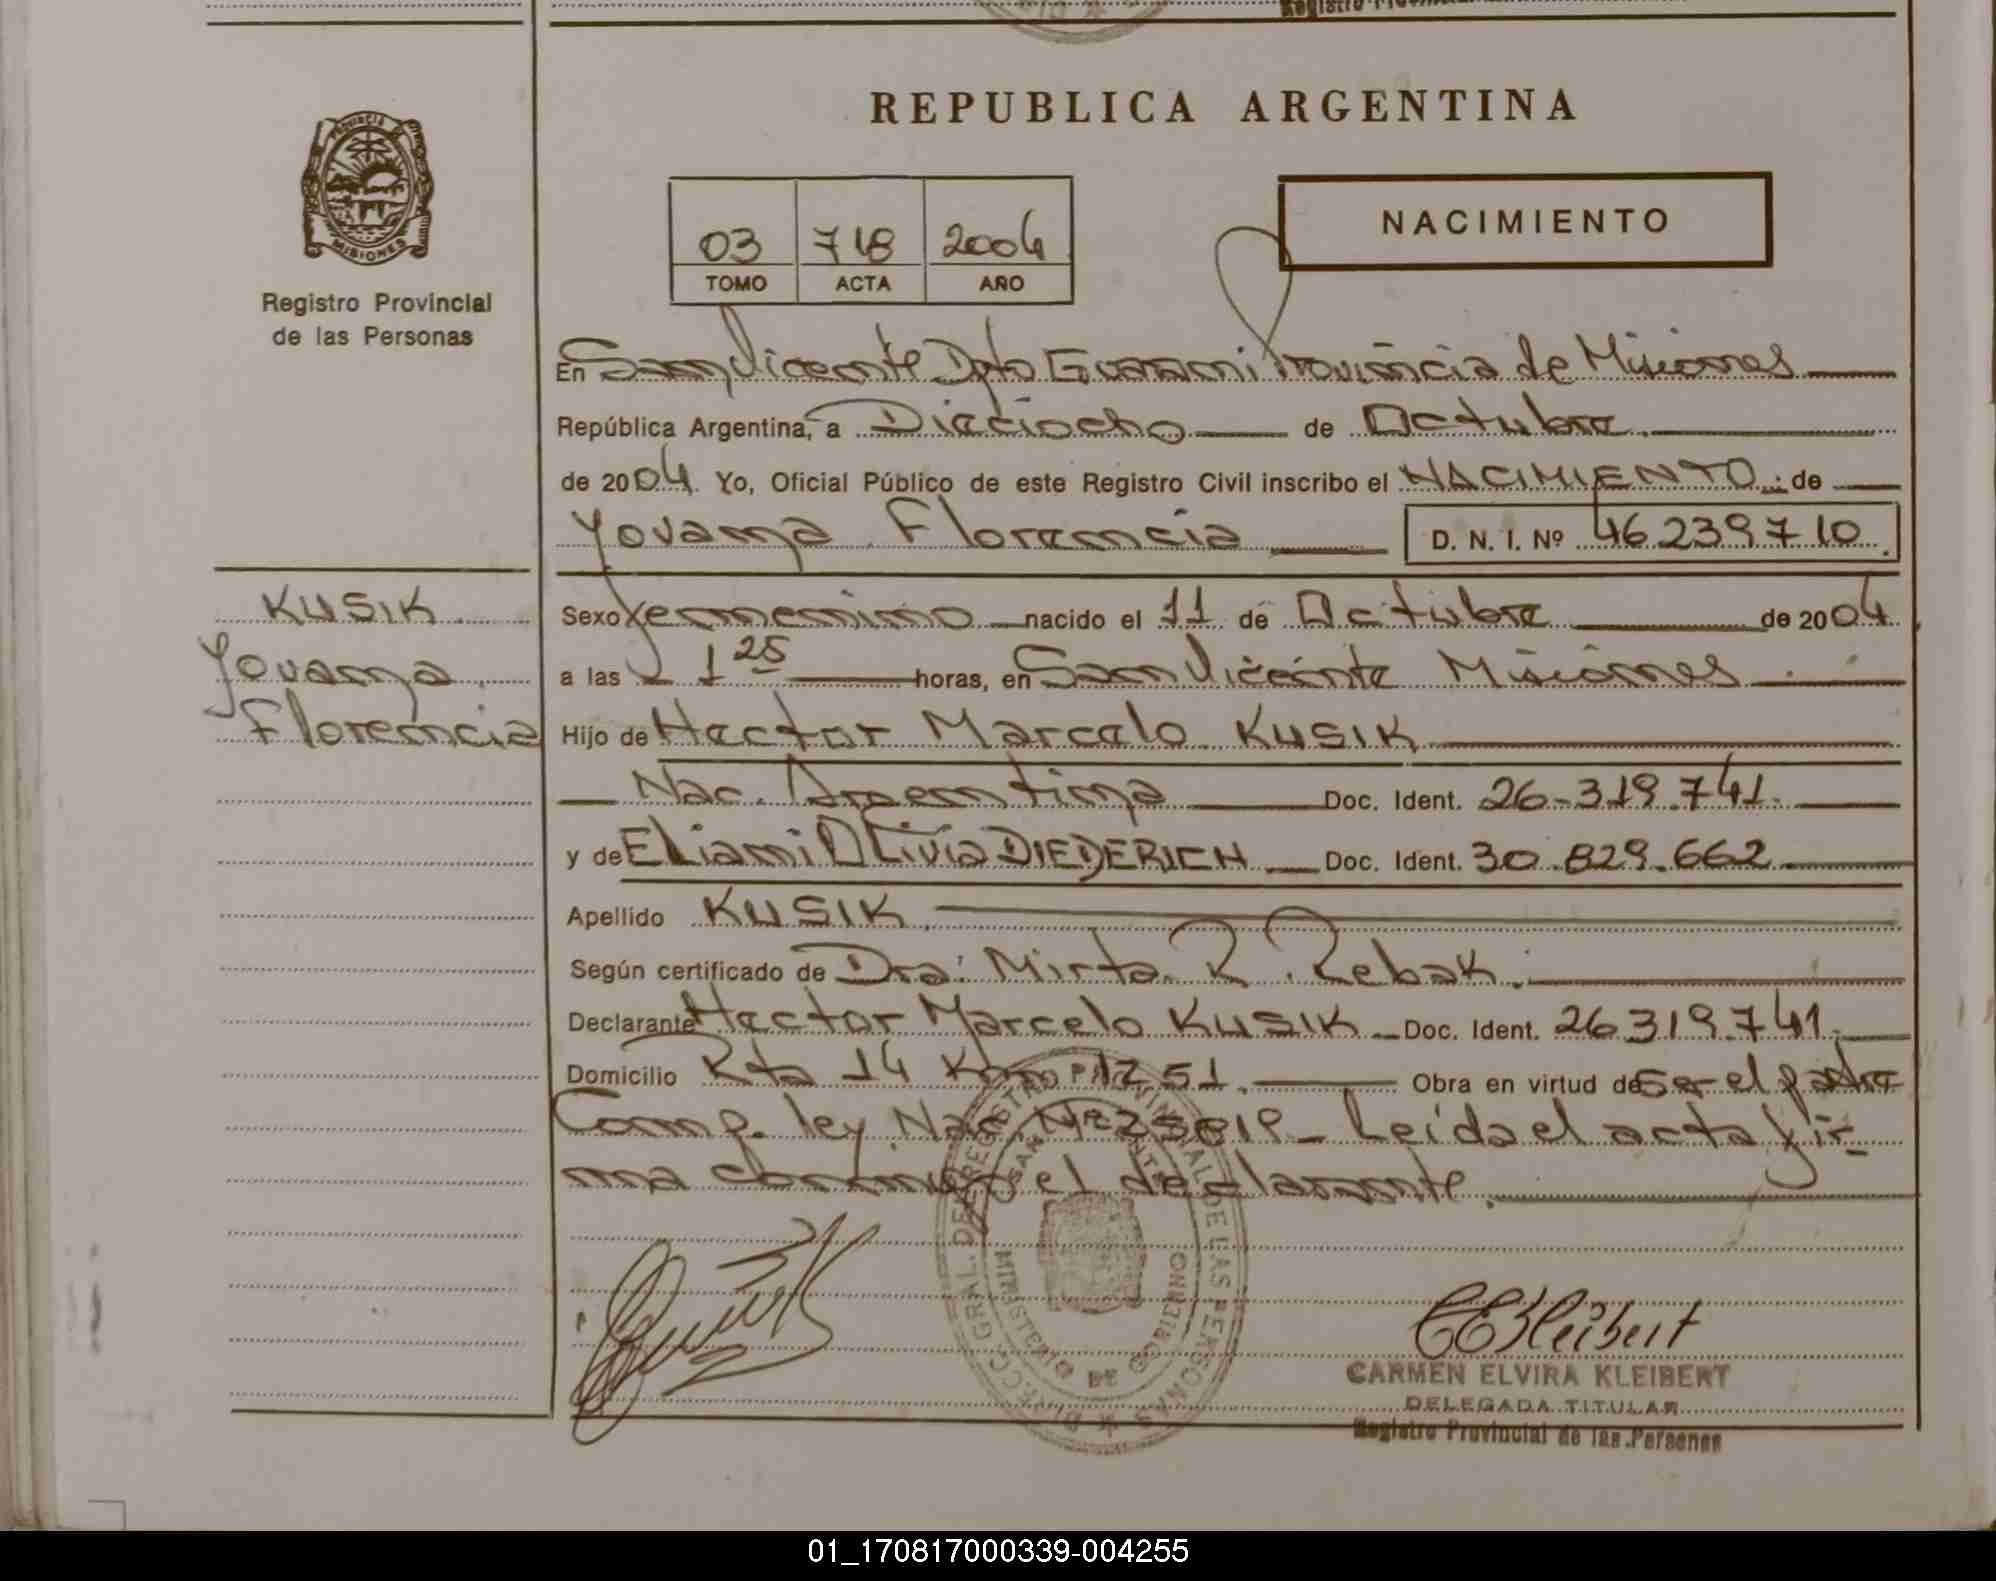 Registro Provincial
PROVINCIA DE
MISIONES
Registro Provincial
de las Personas
REPUBLICA ARGENTINA
NACIMIENTO
03 718 2004
TOMO ACTA AÑO
En San Vicente Dpto Guarani Provincia de Misiones
República Argentina, a Dieciocho de Octubre
de 2004 Yo, Oficial Público de este Registro Civil inscribo el NACIMIENTO de
Yovana Florencia D. N. I. Nº 46.239.710
KUSIK
Yovana
Florencia
Sexo femenino nacido el 11 de Octubre de 2004
a las 1 25 horas, en San Vicente Misiones
Hijo de Hector Marcelo KUSIK
Nac. Argentina Doc. Ident. 26-319.741
y de Eliami Olivia DIEDERICH Doc. Ident. 30.829.662
Apellido KUSIK
Según certificado de Dra: Mirta R. Rebak.
Declarante Hector Marcelo KUSIK Doc. Ident. 26.319.741
Domicilio Rta 14 Km 1251. Obra en virtud de Ser el padre
Comp. ley Nac. Nº Leida el acta fir-
ma conmigo el declarante.
DIRECC. GRAL. DE REGISTRO PROVINCIAL DE LAS PERSONAS
SAN VICENTE
MINISTERIO DE GOBIERNO
CEKleibert
CARMEN ELVIRA KLEIBERT
DELEGADA TITULAR
Registro Provincial de las Personas
01_170817000339-004255